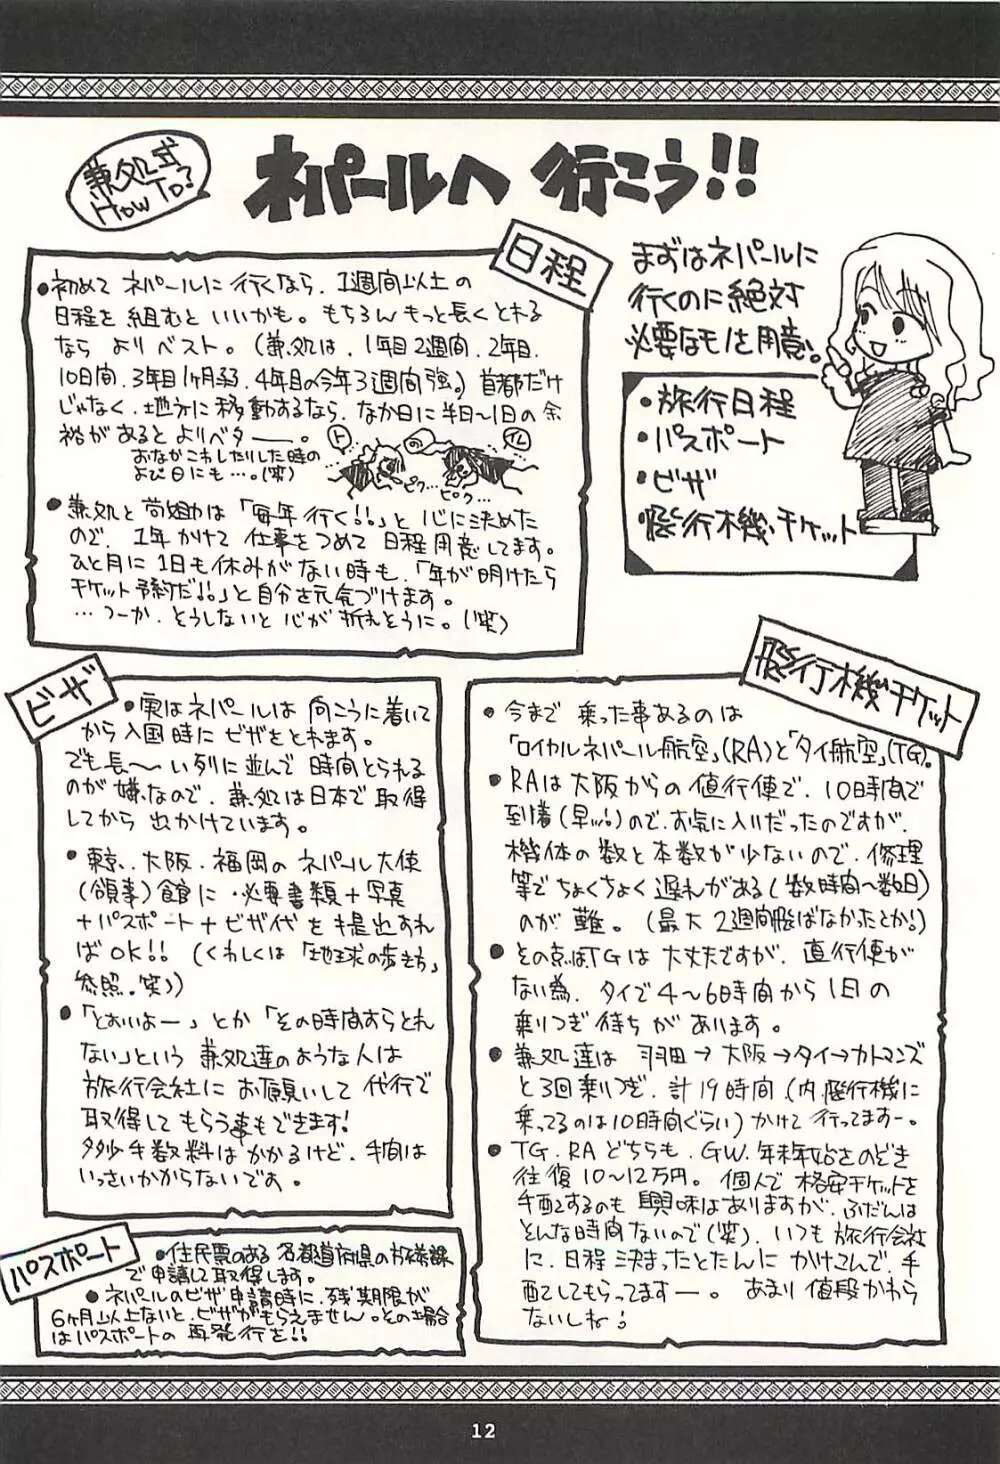 兼処式
HOW TO?
ネパールへ 行こう!!
まずはネパールに
行くのに絶対
必要なモノを用意。
・旅行日程
・パスポート
・ビザ
・飛行機チケット
日程
●初めて ネパールに 行くなら、1週間以上の
日程を 組むと いいかも。もちろん もっと長く とれる
なら よりベスト。(兼処は、1年目2週間、2年目
10日間、3年目1ヶ月弱、4年目の今年3週間強。) 首都だけ
じゃなく、地方に移動するなら、なか日に半日〜1日の余
裕が あると よりベター――。
おなかこわしたりした時の
よび日にも…。(笑)
ト の イレ
ピク… ピク…
●兼処と 尚姐は「毎年 行く!!」と 心に決めた
ので、1年かけて 仕事をつめて 日程用意してます。
ひと月に 1日も休みが ない時も、「年が明けたら
チケット予約だ!!」と自分を元気づけます。
…つーか、そうしないと 心が 折れそうに。(笑)
ビザ
●実はネパールは 向こうに着いて
から入国時に ビザをとれます。
でも長〜い列に並んで 時間とられる
のが 嫌なので、兼処は日本で取得
してから 出かけています。
●東京、大阪、福岡の ネパール大使
(領事)館に 必要書類+写真
+パスポート+ビザ代 を提出すれ
ばOK!! (くわしくは「地球の歩き方」
参照。笑))
●「とおいよー」とか「その時間すらとれ
ない」という 兼処達のような人は
旅行会社に お願いして 代行で
取得して もらう事もできます!
多少手数料は かかるけど、手間は
いっさいかからないです。
パスポート
●住民票のある 各都道府県の旅券課
で申請して取得します。
●ネパールのビザ申請時に、残り期限が
6ヶ月以上ないと、ビザがもらえません。その場合
はパスポートの 再発行を!!
飛行機チケット
●今まで 乗った事あるのは
「ロイヤルネパール航空」(RA)と「タイ航空」(TG)。
●RAは大阪からの値行便で、10時間で
到着(早ッ!)ので、お気に入りだったのですが、
機体の数と本数が少ないので、修理
等でちょくちょく遅れがある(数時間〜数日)
のが 難。(最大2週間飛ばなかったとか!)
●その点はTGは 大丈夫ですが、直行便が
ない為、タイで4〜6時間から1日の
乗りつぎ待ちが あります。
●兼処達は 羽田→大阪→タイ→カトマンズ
と3回乗りつぎ、計19時間(内、飛行機に
乗ってるのは10時間ぐらい)かけて 行ってますー。
●TG、RAどちらも、GW、年末年始をのぞき
往復10〜12万円。個人で格安チケットを
手配するのも 興味はありますが、ふだんは
そんな時間ないので(笑)、いつも旅行会社
に、日程決まったとたんに かけこんで、手
配してもらってますー―。あまり値段かわら
ないしね!
12